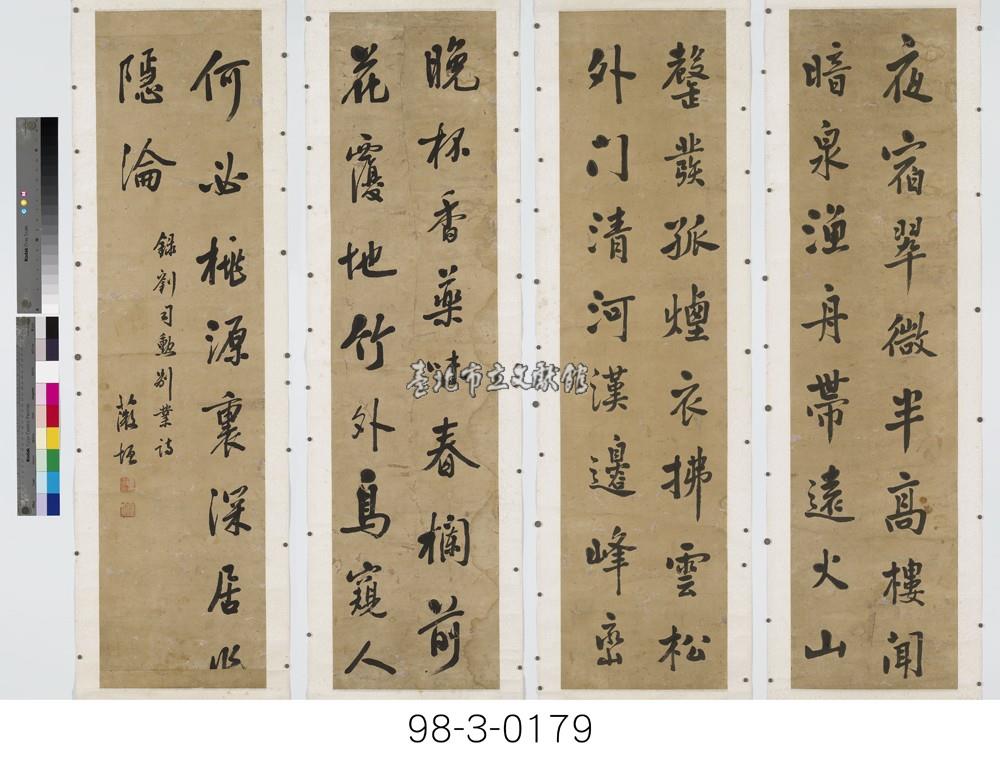 夜宿翠微半高樓聞
暗泉漁舟帶遠火山
罄發孤煙衣拂雲松
外門清河漢邊峰巒
晚杯香藥味春欄前
花覆地竹外鳥窺人
何必桃源裏深居作
隱淪
錄劉司勳別業詩
薇垣
臺北市立文獻館
98-3-0179